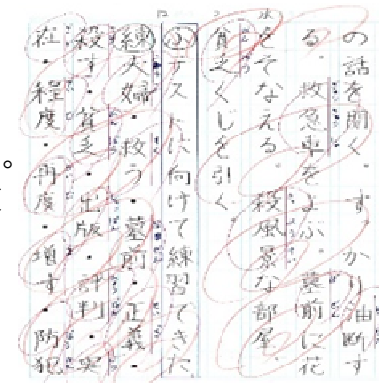 の話を聞く。すかり油断す
る。救急車をよぶ。墓前に花
をそなえる。殺風景な部屋。
貧乏くじを引く。
小テストに向けて練習できた
夫婦・救う・墓前・正義・
殺す・貧乏・出版・評判・実
在・程度・再度・増す・防犯